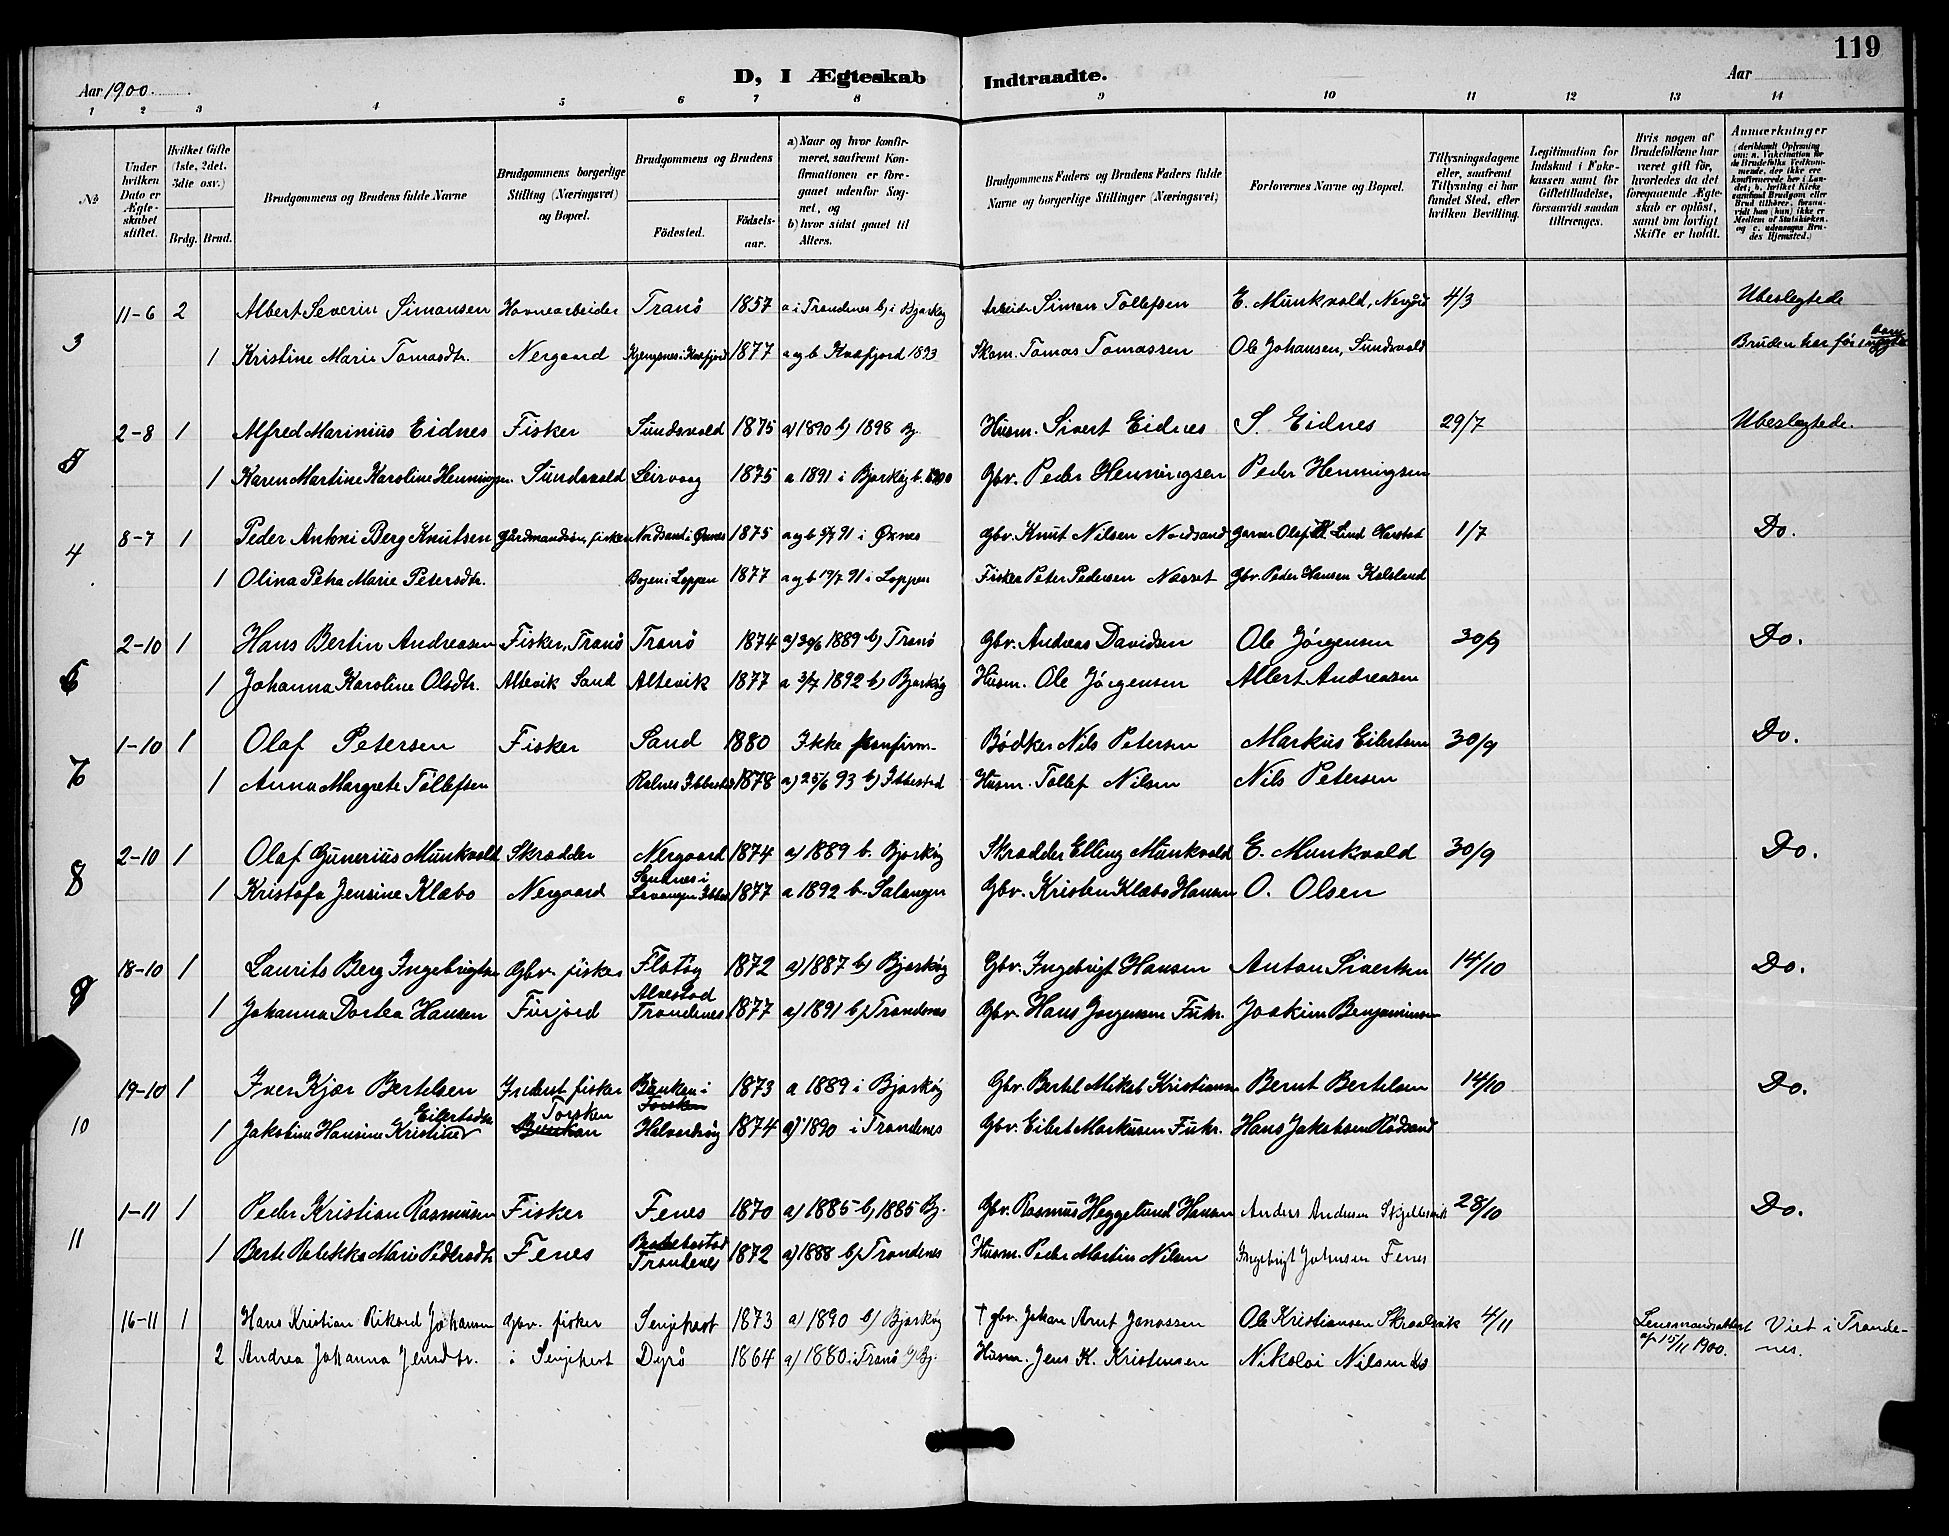 119
Aar 1900.
D, I Ægteskab Indtraadte.
Aar
1 2 3 4 5 6 7 8 9 10 11 12 13 14
№
Under hvilken Dato er Ægteskabet stiftet.
Hvilket Gifte (1ste, 2det, 3die osv.)
Brdg. Brud.
Brudgommens og Brudens fulde Navne
Brudgommens borgerlige Stilling (Næringsvei) og Bopæl.
Brudgommens og Brudens
Födested.
Födselsaar.
a) Naar og hvor konfirmeret, saafremt Konfirmationen er foregaaet udenfor Sognet, og
b) hvor sidst gaaet til Alters.
Brudgommens Faders og Brudens Faders fulde Navne og borgerlige Stillinger (Næringsvei)
Forlovernes Navne og Bopæl.
Tillysningsdagene eller, saafremt Tillysning ei har fundet Sted, efter hvilken Bevilling.
Legitimation for Indskud i Enkekassen samt for Giftetilladelse, forsaavidt saadan tiltrænges.
Hvis nogen af Brudefolkene har været gift för, hvorledes da det foregaaende Ægteskab er oplöst, samt om lovligt Skifte er holdt.
Anmærkninger (deriblandt Oplysning om: a. Vakcination for de Brudefolks Vedkommende, der ikke ere konfirmerede her i Landet; b. hvilket Kirkesamfund Brudgom eller Brud tilhører, forsaavidt han (hun) ikke er Medlem af Statskirken, og c. udensogns Brudes Hjemsted.)
3 11-6 2 Albert Severin Simonsen Havnearbeider Tranö 1857 a i Trondenes b) i Bjarköy Arbeider Simon Tollefsen E. Munkvold, Nergård 4/3 Ubeslegtede
1 Kristine Marie Tomasdtr. Nergaard Kjengsnes i Kvæfjord 1877 a og b Kvæfjord 1893 Skom. Tomas Tomassen Ole Johansen, Sundsvold Bruden har før
5 2-8 1 Alfred Marinius Eidnes Fisker Sundsvold 1875 a) 1890 b) 1898 Bj. Husm. Sivert Eidnes S. Eidnes 29/7 Ubeslegtede.
1 Karen Martine Karoline Henningsn. Sundsvold Leirvaag 1875 a 1891 i Bjarköy b. 1900 Gbr. Peder Henningsen Peder Henningsen
4 8-7 1 Peder Antoni Berg Knutsen Gårdmandsön, fisker Nordsand i Öxnes 1875 a og b 5/7 91 i Öxnes Gbr. Knut Nilsen Nordsand Garver Olaf Lind Harstad 1/7 Do.
1 Olina Petra Marie Petersdtr. Bogen i Loppen 1877 a og b 19/7 91 i Loppen Fisker Peter Pedersen Næsset Gbr. Peder Hansen Kalsland
6 2-10 1 Hans Bertin Andreasen Fisker, Tranö Tranö 1874 a) 30/6 1889 b) Tranö Gbr. Andreas Davidsen Ole Jörgensen 30/9 Do.
1 Johanna Karoline Olsdtr. Altevik Sand Altevik 1877 a 3/7 1892 b) Bjarköy Husm. Ole Jörgensen Albert Andreasen
7 1-10 1 Olaf Petersen Fisker Sand 1880 Ikke konfirm. Bödker Nils Petersen Markus Eilertsen 30/9 Do.
1 Anna Margrete Tollefsen Rolnes Ibbestad 1878 a) 25/6 93 b) Ibbestad Husm. Tollef Nilsen Nils Petersen
8 2-10 1 Olaf Gunerius Munkvold Skrædder Nergaard 1874 a) 1889 b. Bjarköy Skrædder Elling Munkvold E. Munkvold 30/9 Do.
1 Kristofa Jensine Klæbo Nergaard Seines i Lavangen Ibbest 1877 a 1892 b. Salangen Gbr. Kristen Klæbo Hansen O. Olsen
9 18-10 1 Laurits Berg Ingebrigtsn Gbr. fisker Flatöy 1872 a) 1887 b) Bjarköy Gbr. Ingebrigt Hansen Anton Sivertsen 14/10 Do.
1 Johanna Dortea Hansen Furjord Alvestad Trondenes 1877 a) 1891 b) Trondenes Gbr. Hans Jörgensen Fuhr. Joakim Benjaminsen
10 19-10 1 Iver Kjær Bertelsen Inderst fisker Bunken i Torsken 1873 a 1889 i Bjarköy Gbr. Bertel Mikal Kristiansen Bernt Bertelsen 14/10 Do.
1 Jakobine Hansine Kristine Eilertsdtr Bunkan Torsken Halvardsöy 1874 a) 1890 i Trondenes Gbr. Eilert Markusen Fuhr. Hans Jakobsen Rödsand
11 1-11 1 Peder Kristian Rasmusen Fisker Fenes 1870 a) 1885 b) 1885 Bj. Gbr. Rasmus Heggelund Hansen Anders Andersen Skjellesvik 28/10 Do.
1 Berte Rebekka Marie Pedersdtr Fenes Trondenes 1872 a) 1888 b) Trondenes Husm. Peder Martin Nilsen Ingebrigt Johnsen Fenes
16-11 1 Hans Kristian Rikard Johansen Gbr. fisker Senjehest 1873 a) 1890 b) Bjarköy † gbr. Johan Arnt Jonassen Ole Kristiansen Skrolsvik 4/11 Lensmandsattest af 15/11 1900. Viet i Trondenes.
2 Andrea Johanna Jensdtr. i Senjehest Dyrö 1864 a) 1880 i Tranö b) Bj. Husm. Jens K. Kristensen Nikolai Nilsen do